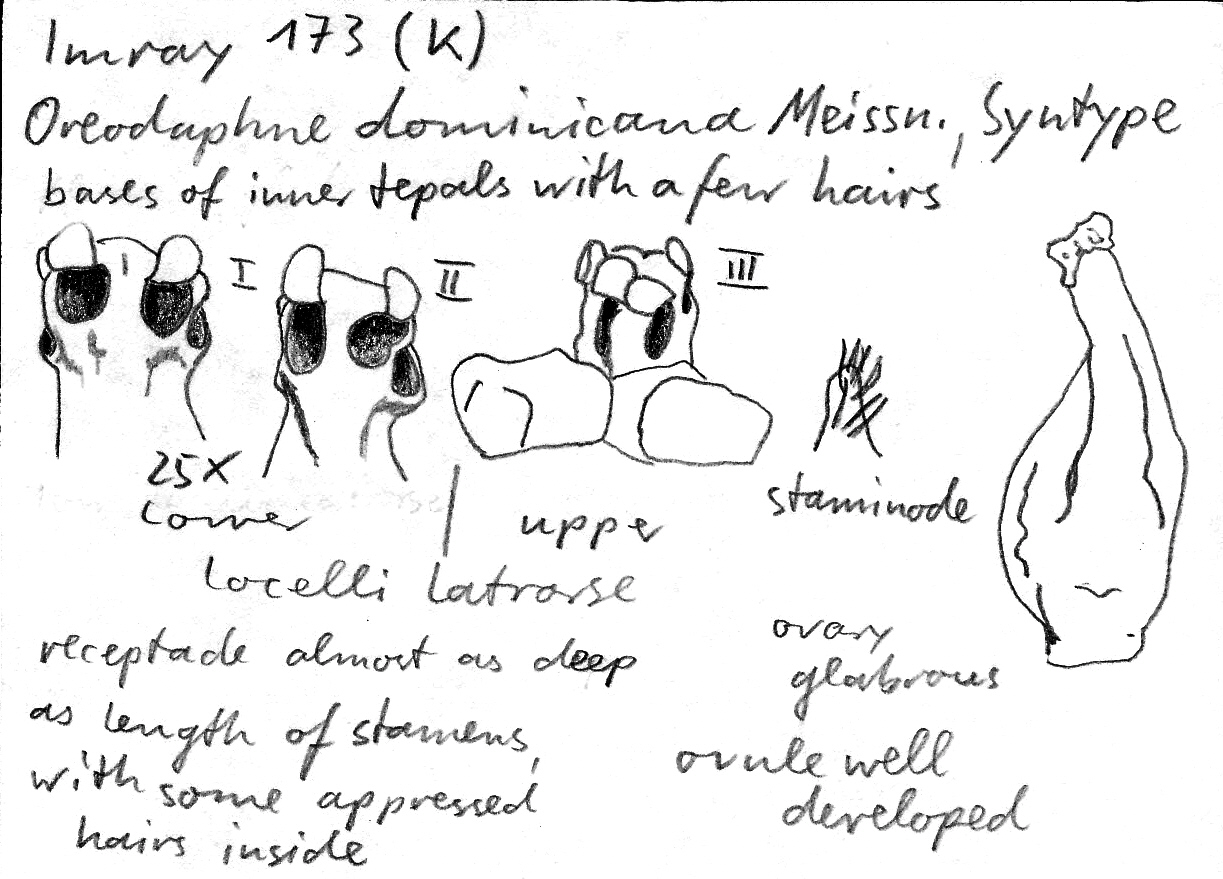 Imray 173 (K)
Oreodaphne dominicana Meissn., Syntype
bases of inner tepals with a few hairs
I
II
III
25x
lower
upper
staminode
locelli latrorse
receptacle almost as deep
as length of stamens,
with some appressed
hairs inside
ovary
glabrous
ovule well
developed